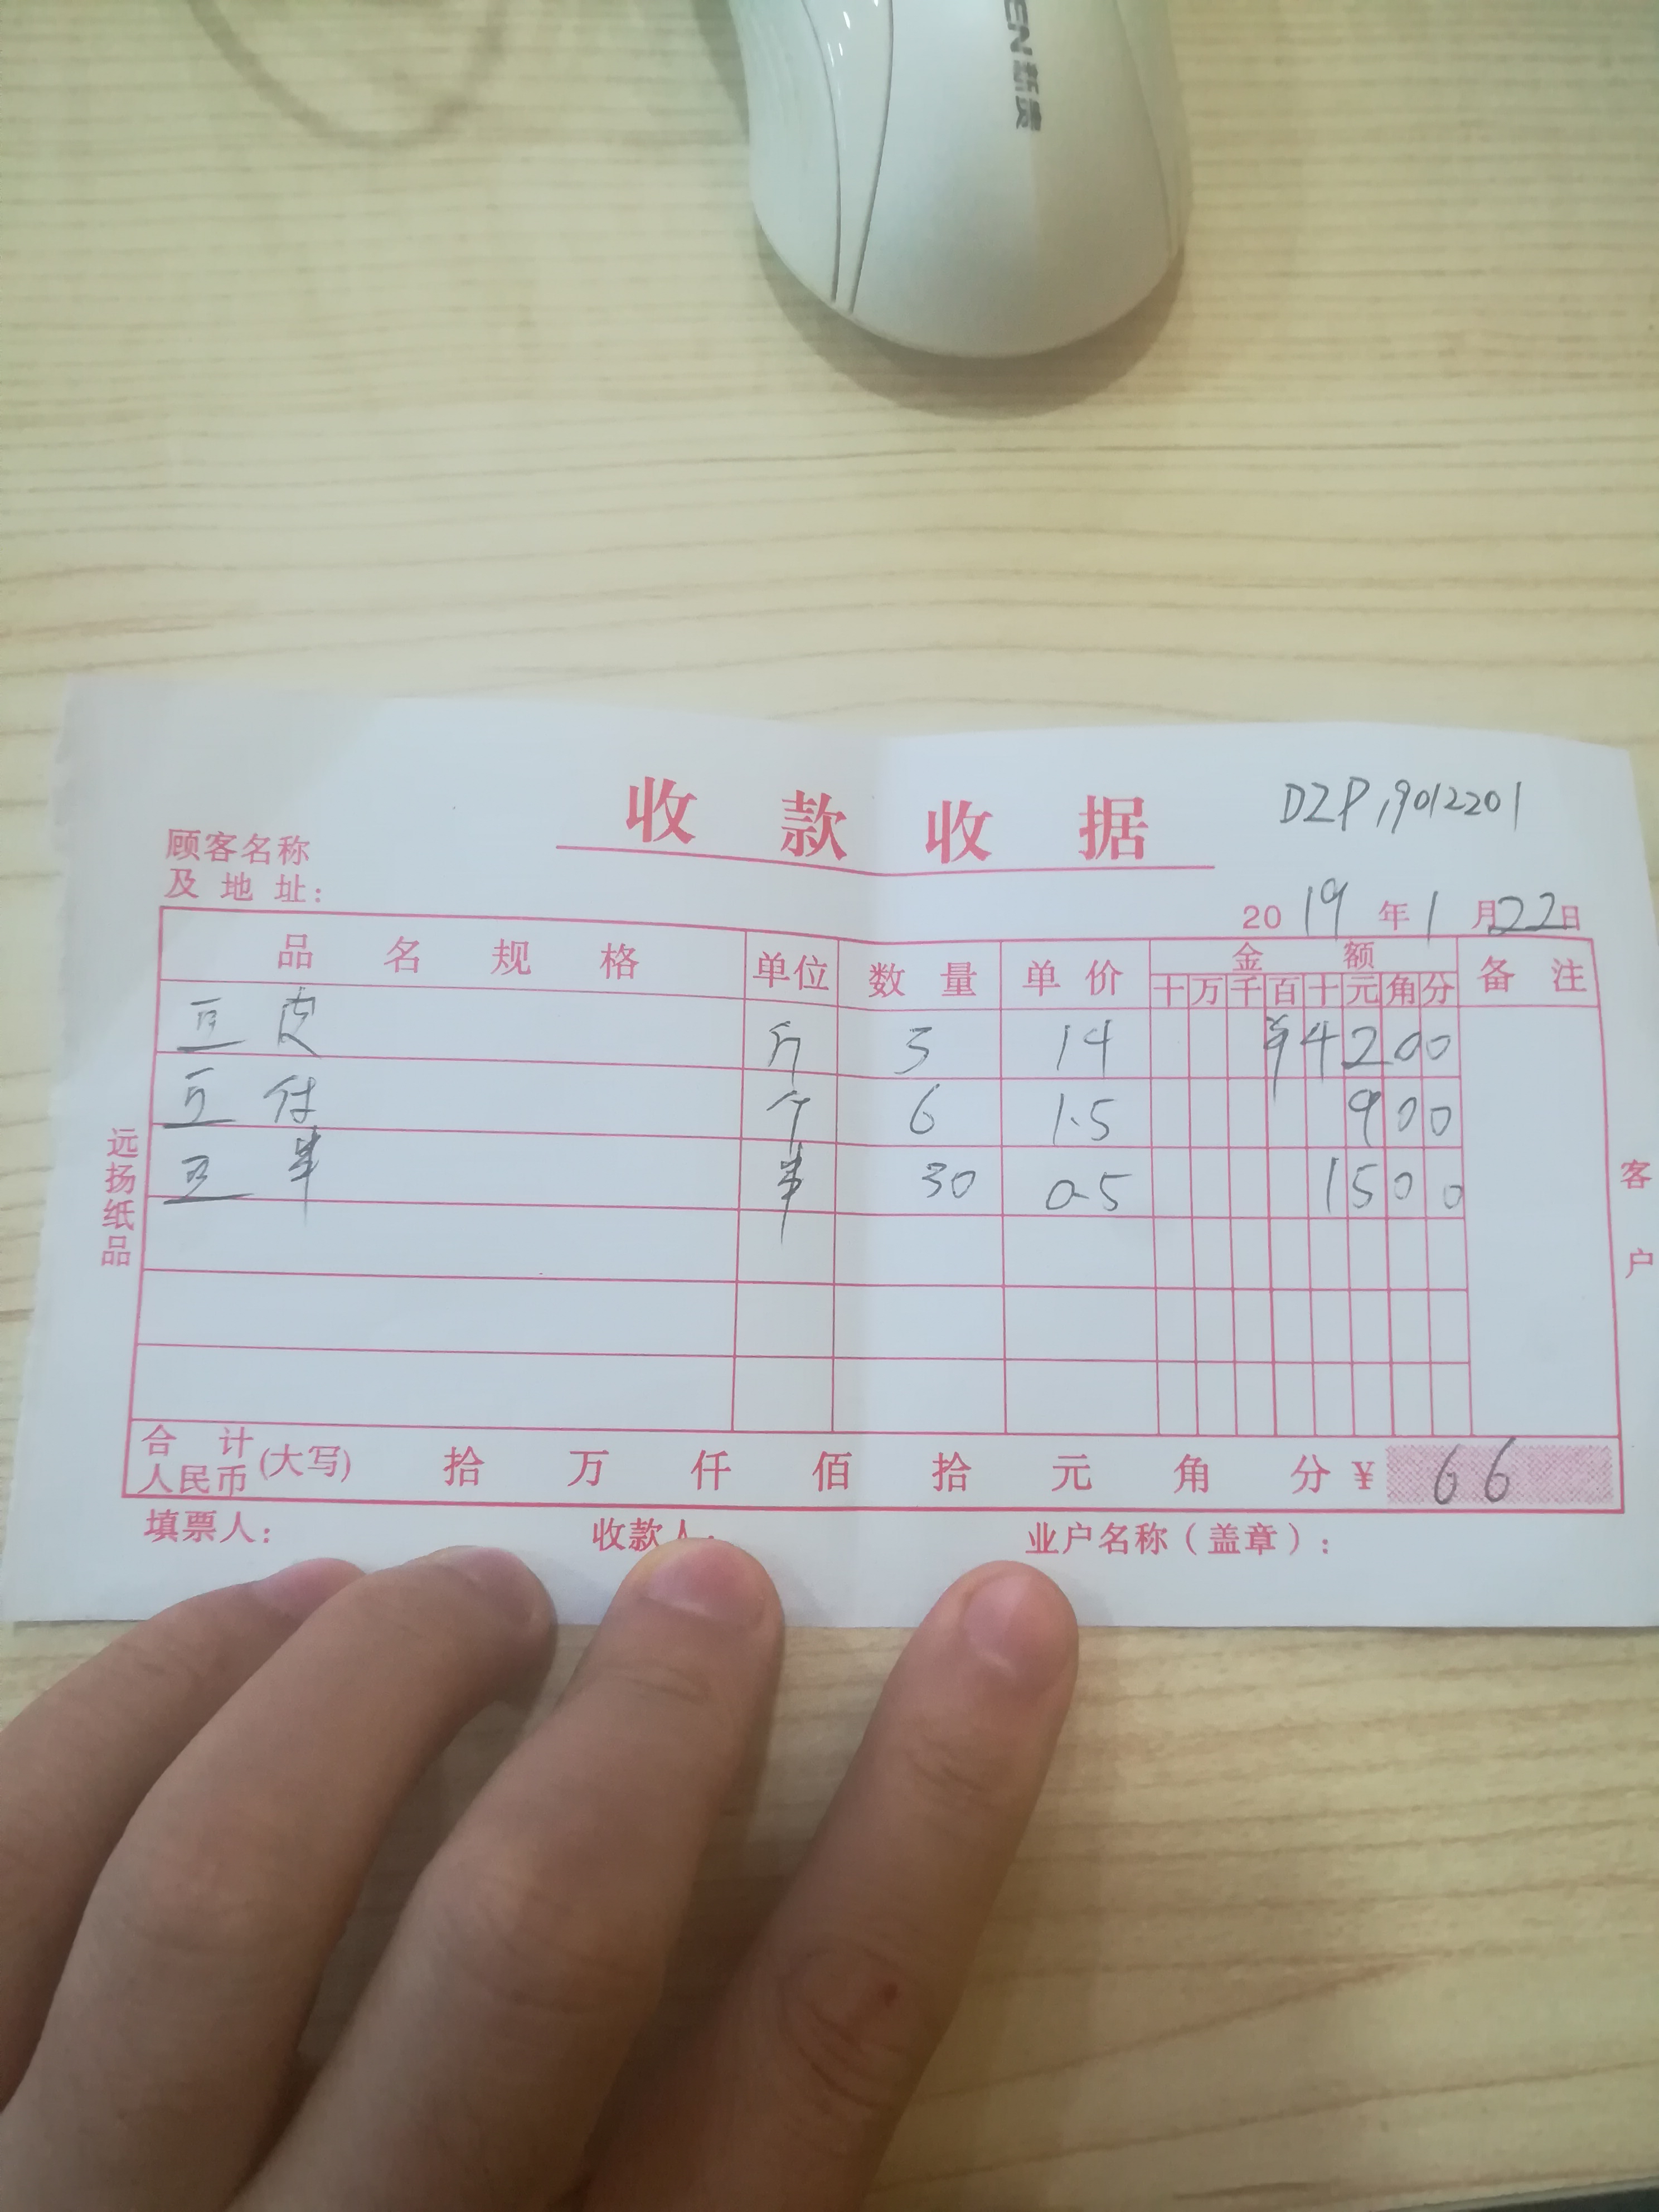 收款收据
DZP19012201
顾客名称
及地址：
2019年1月22日
品名规格 单位 数量 单价 金额 备注
十万千百十元角分
豆皮 斤 3 14 ¥4200
豆付 个 6 1.5 900
豆串 串 30 0.5 1500
合计
人民币(大写) 拾 万 仟 佰 拾 元 角 分 ¥ 66
填票人： 收款人： 业户名称（盖章）：
远扬纸品
客户